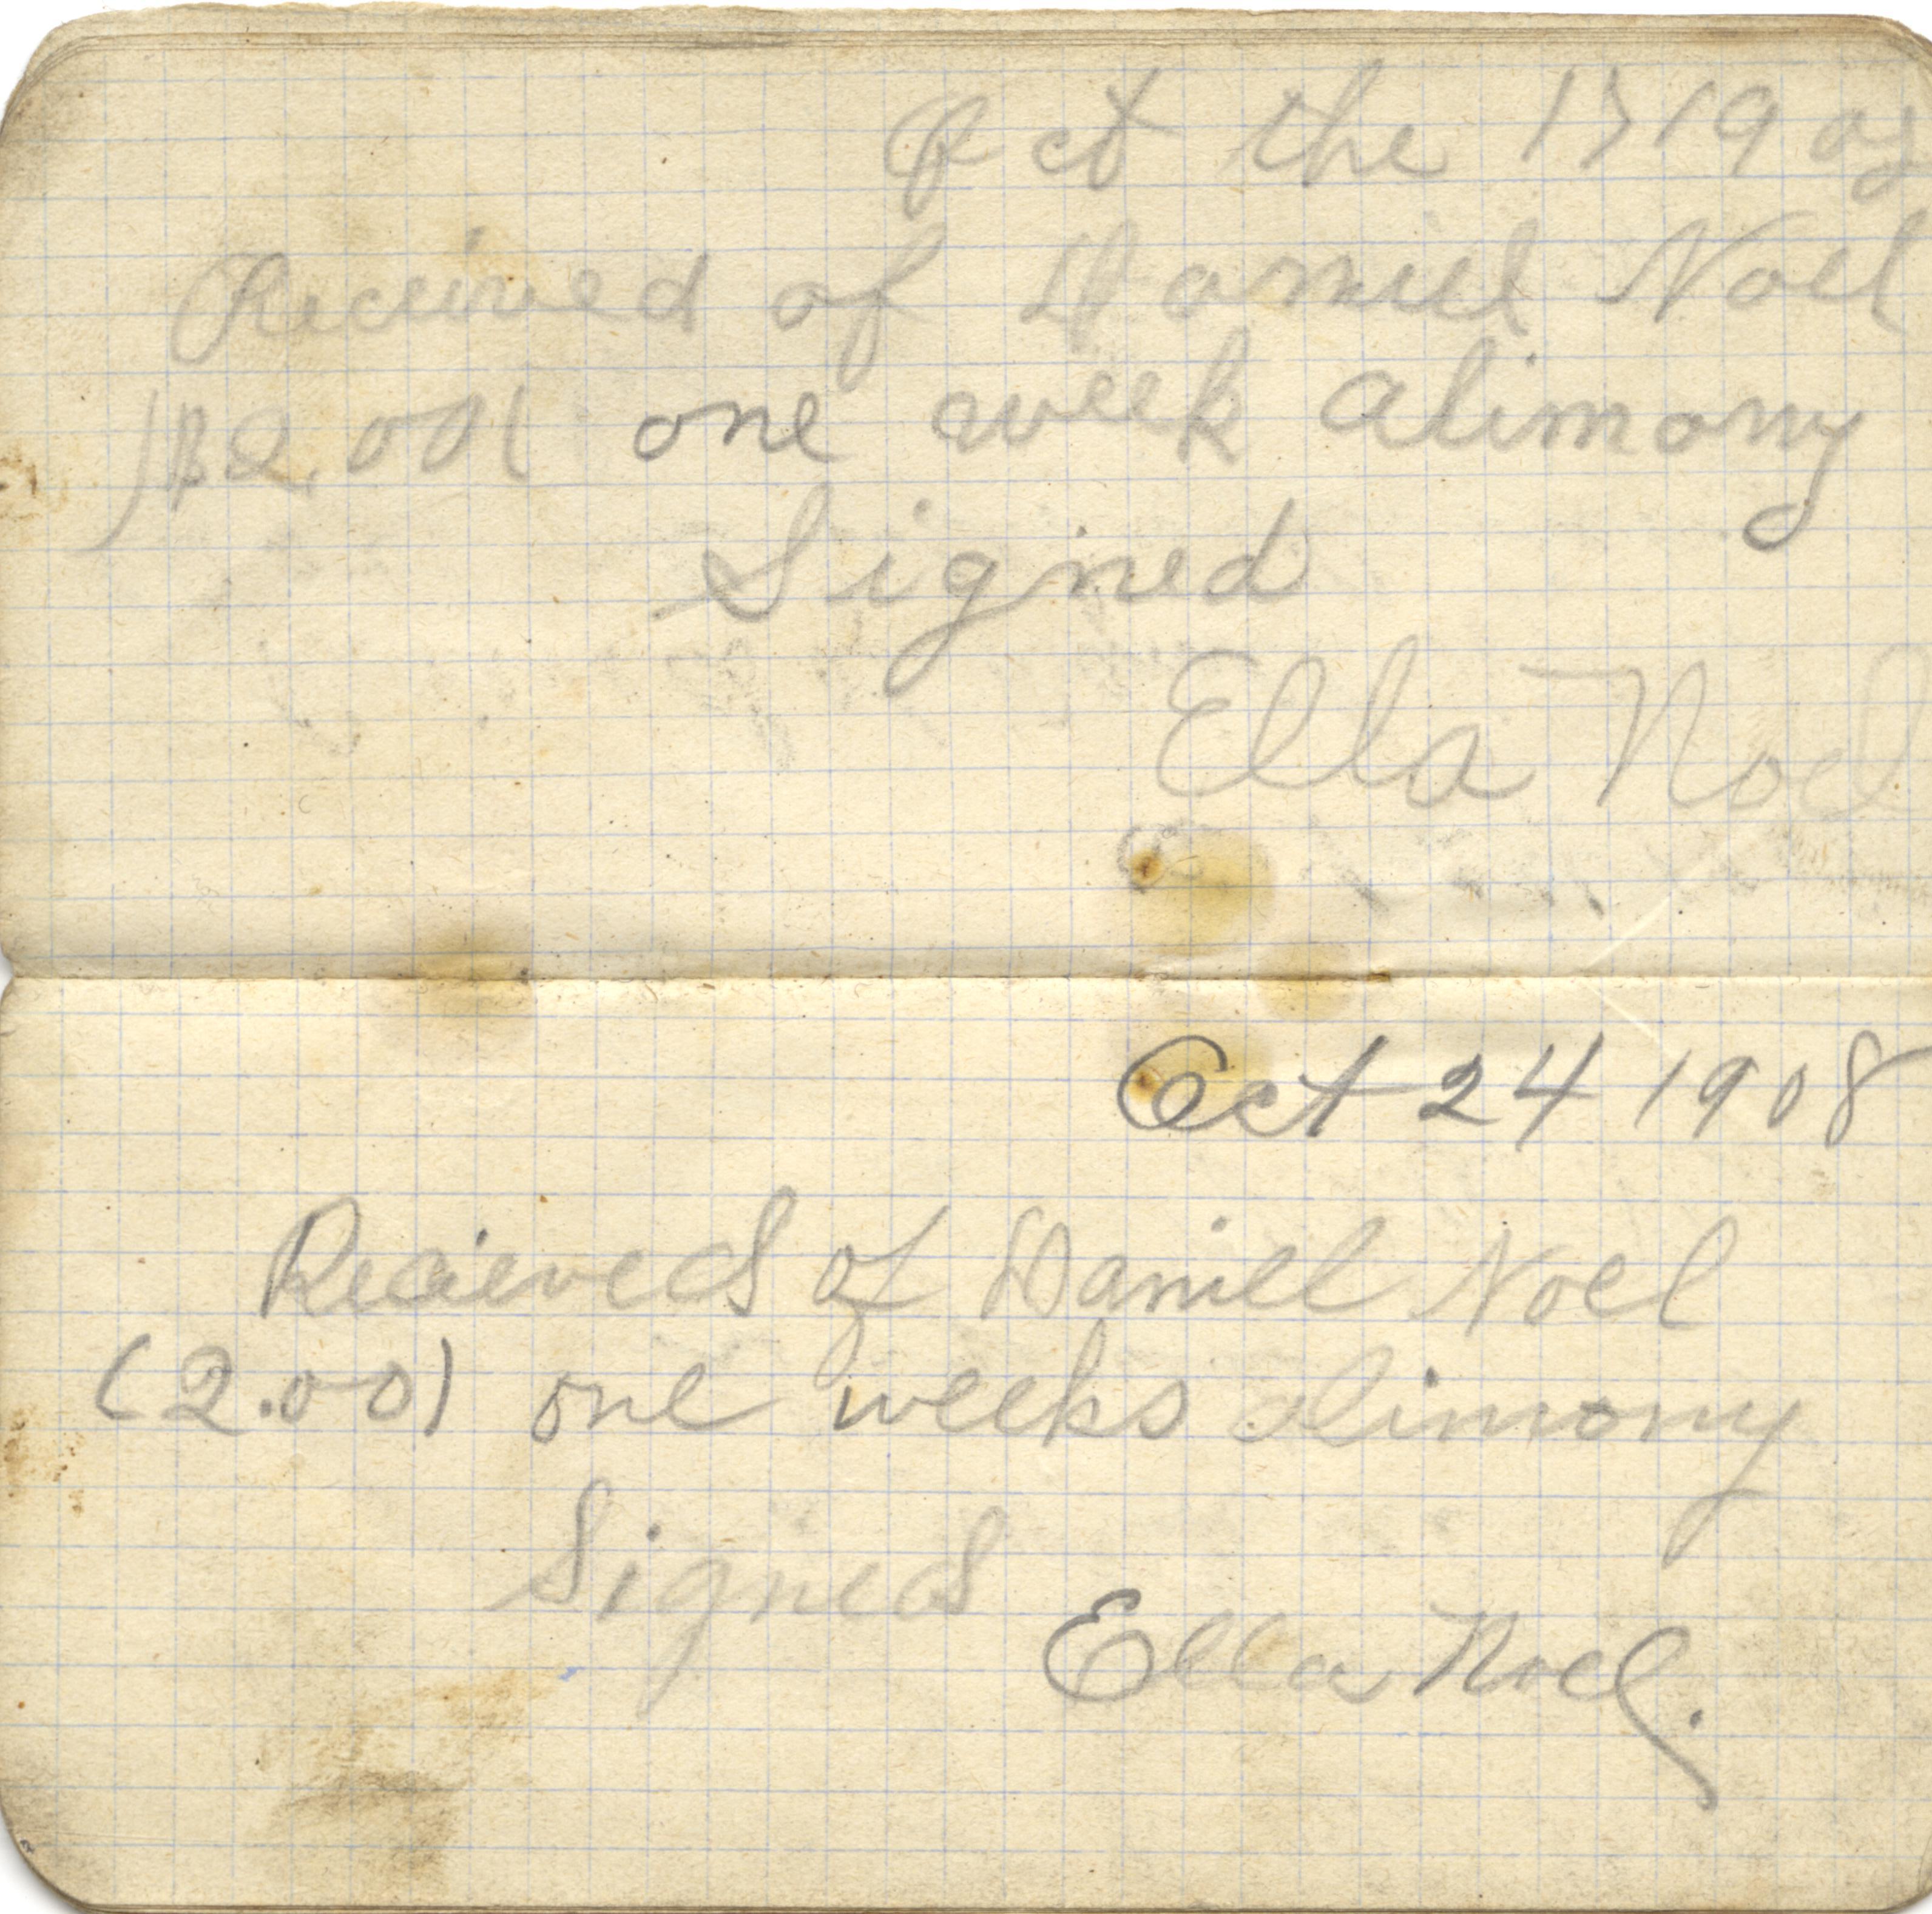 Oct the 17 1908
Received of Daniel Noel
($2.00) one week alimony
Signed
Ella Noel
Oct 24 1908
Recieved of Daniel Noel
(2.00) one weeks alimony
Signed
Ella Noel.